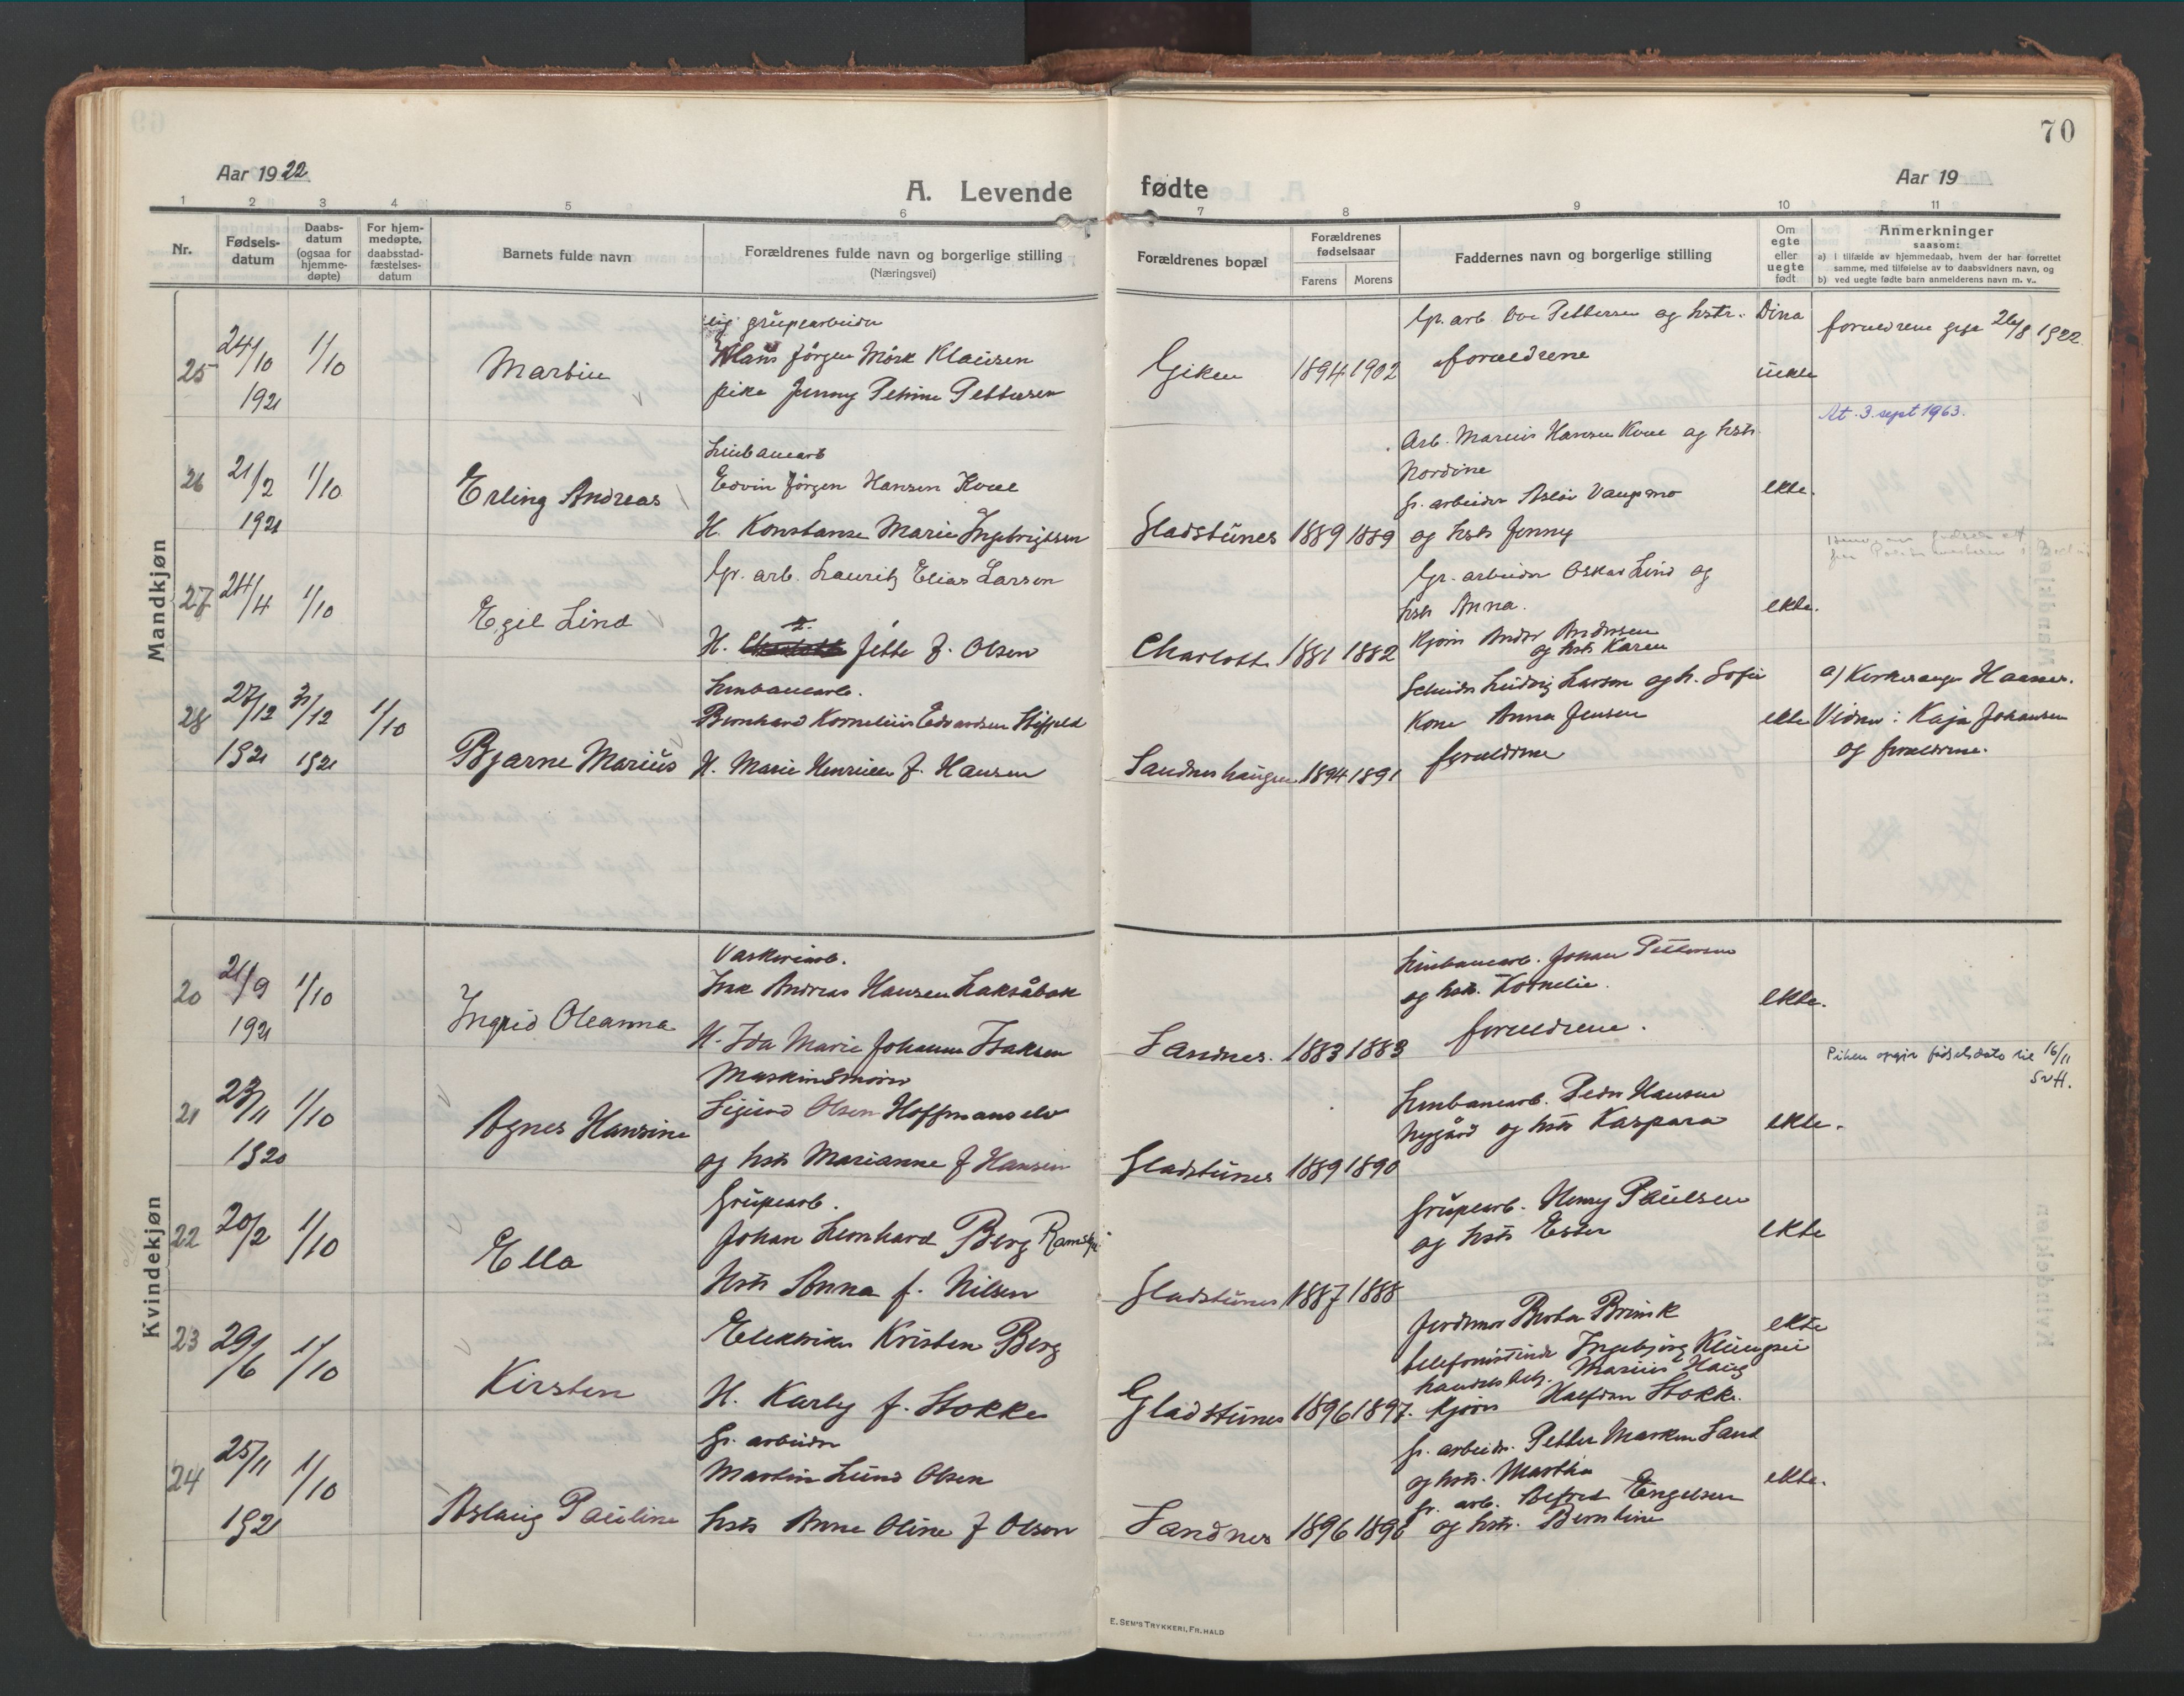 70
Aar 1922
Aar 19
A. Levende fødte
1 2 3 4 5 6 7 8 9 10 11
Nr.
Fødsels-
datum
Daabs-
datum
(ogsaa for
hjemme-
døpte)
For hjem-
medøpte,
daabsstad-
fæstelses-
datum
Barnets fulde navn
Forældrenes fulde navn og borgerlige stilling
(Næringsvei)
Forældrenes bopæl
Forældrenes
fødselsaar
Farens Morens
Faddernes navn og borgerlige stilling
Om
egte
eller
uegte
født
Anmerkninger
saasom:
a) i tilfælde av hjemmedaab, hvem der har forrettet
samme, med tilføielse av to daabsvidners navn, og
b) ved uegte fødte barn anmelderens navn m. v..
Mandkjøn
25 24/10 1921 1/10
Martin
grupearbeider
Klaus Jörgen Mörk Klausen
pike Jenny Petrine Pettersen
Giken 1894 1902
Gr. arb. Ove Pettersen og hstr. Dina
forældrene
uekte
forældrene gift 26/8 1922.
At. 3. sept 1963.
26 21/2 1921 1/10
Erling Andreas
Linbanearb
Edvin Jörgen Hansen Kvæl
H. Konstanse Marie Ingebrigtsen
Gladstunes 1889 1889
Arb. Marius Hansen Kvæl og hstr.
Nordine
gr. arbeider Aslöi Vangsmo
og hstr Jenny
ekte.
27 24/4 1/10
Egil Lind
Gr. arb. Lauritz Elias Larsen
H. Jette f. Olsen
Charlotta 1881 1882
Gr. arbeider Oskar Lind og
hstr Anna.
Kjörer Andor Andersen
og hstr Karen
ekte.
28 27/12 1921 31/12 1921 1/10
Bjarne Marius
Linbanearb.
Bernhard Kornelius Edvardsen
H. Marie Henrikke f. Hansen
Sandneshaugen 1894 1891
Ludvig Larsen og h. Sofie
Kone Anna Jensen
forældrene
ekte
a) Kirkesanger Haaner.
Vidner: Kaja Johansen
og forældrene.
Kvindekjøn
20 21/9 1921 1/10
Ingrid Oleanna
Vaskeriarb.
Isak Andreas Hansen Laksåbak
H. Ida Marie Johanne Isaksen
Sandnes. 1883 1883
Linbanearb. Johan Pettersen
og hstr. Kornelie.
forældrene.
ekte.
21 23/11 1920 1/10
Agnes Hansine
Maskinsmörer
Sigurd Olsen Hoffmanselv
og hstr Marianne f Hansen
Gladstunes 1889 1890
Linbanearb. Peder Hansen
Nygård og hstr Kaspara
ekte.
Piken opgir fødselsdato til 16/11
SvH.
22 20/2 1/10
Ella
Grupearb.
Johan Leonhard Berg
Hstr Anna f. Nilsen
Gladstunes 1887 1888
Grupearb. Henry Paulsen
og hstr Ester
ekte
23 29/6 1/10
Kirsten
Elektriker Kristen Berg
H. Karly f. Stokke
Gladstunes 1896 1897.
Jordmor Berta Brink
telefonistinde Ingebjörg Klüngsu
handelsbetj. Marius Haug
Kjörer Halfdan Stokke.
ekte
24 25/11 1921 1/10
Aslaug Pauline
Gr. arbeider
Martin Lund Olsen
hstr Anne Oline f Olsen
Sandnes 1896 1896
gr. arbeider. Petter Markus Sand
og hstr. Martha
gr. arb. Alfred Engelsen
og hstr. Berntine
ekte.
E. SEM'S TRYKKERI, FR.HALD